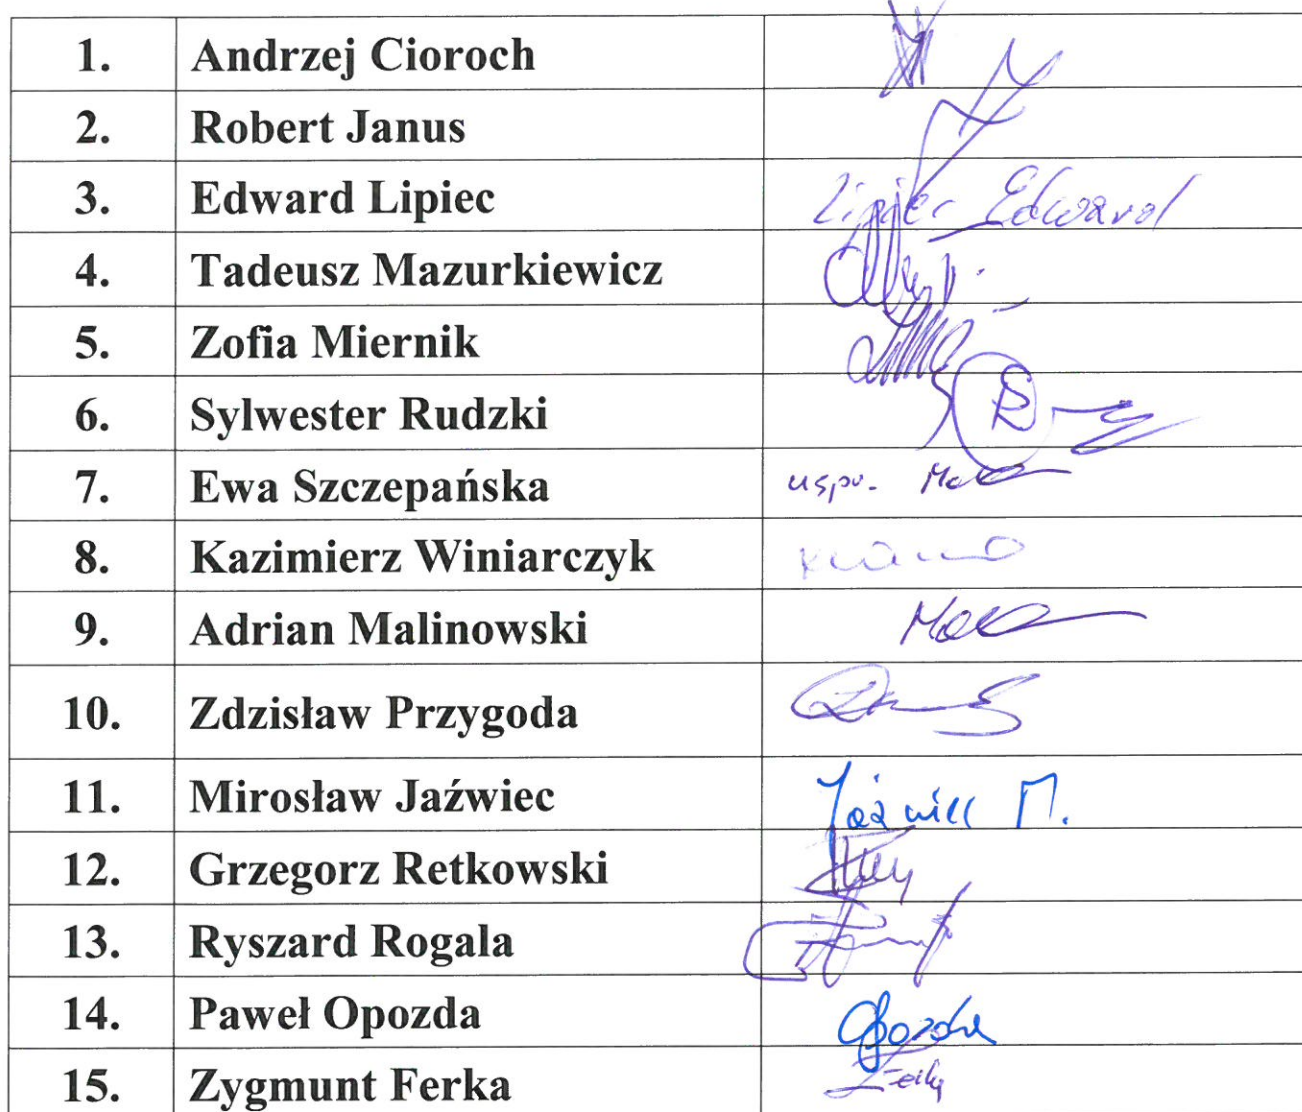 1. Andrzej Cioroch
2. Robert Janus
3. Edward Lipiec Lipiec Edward
4. Tadeusz Mazurkiewicz
5. Zofia Miernik
6. Sylwester Rudzki
7. Ewa Szczepańska uspr.
8. Kazimierz Winiarczyk
9. Adrian Malinowski
10. Zdzisław Przygoda
11. Mirosław Jaźwiec Jaźwiec M.
12. Grzegorz Retkowski
13. Ryszard Rogala
14. Paweł Opozda Opozda
15. Zygmunt Ferka